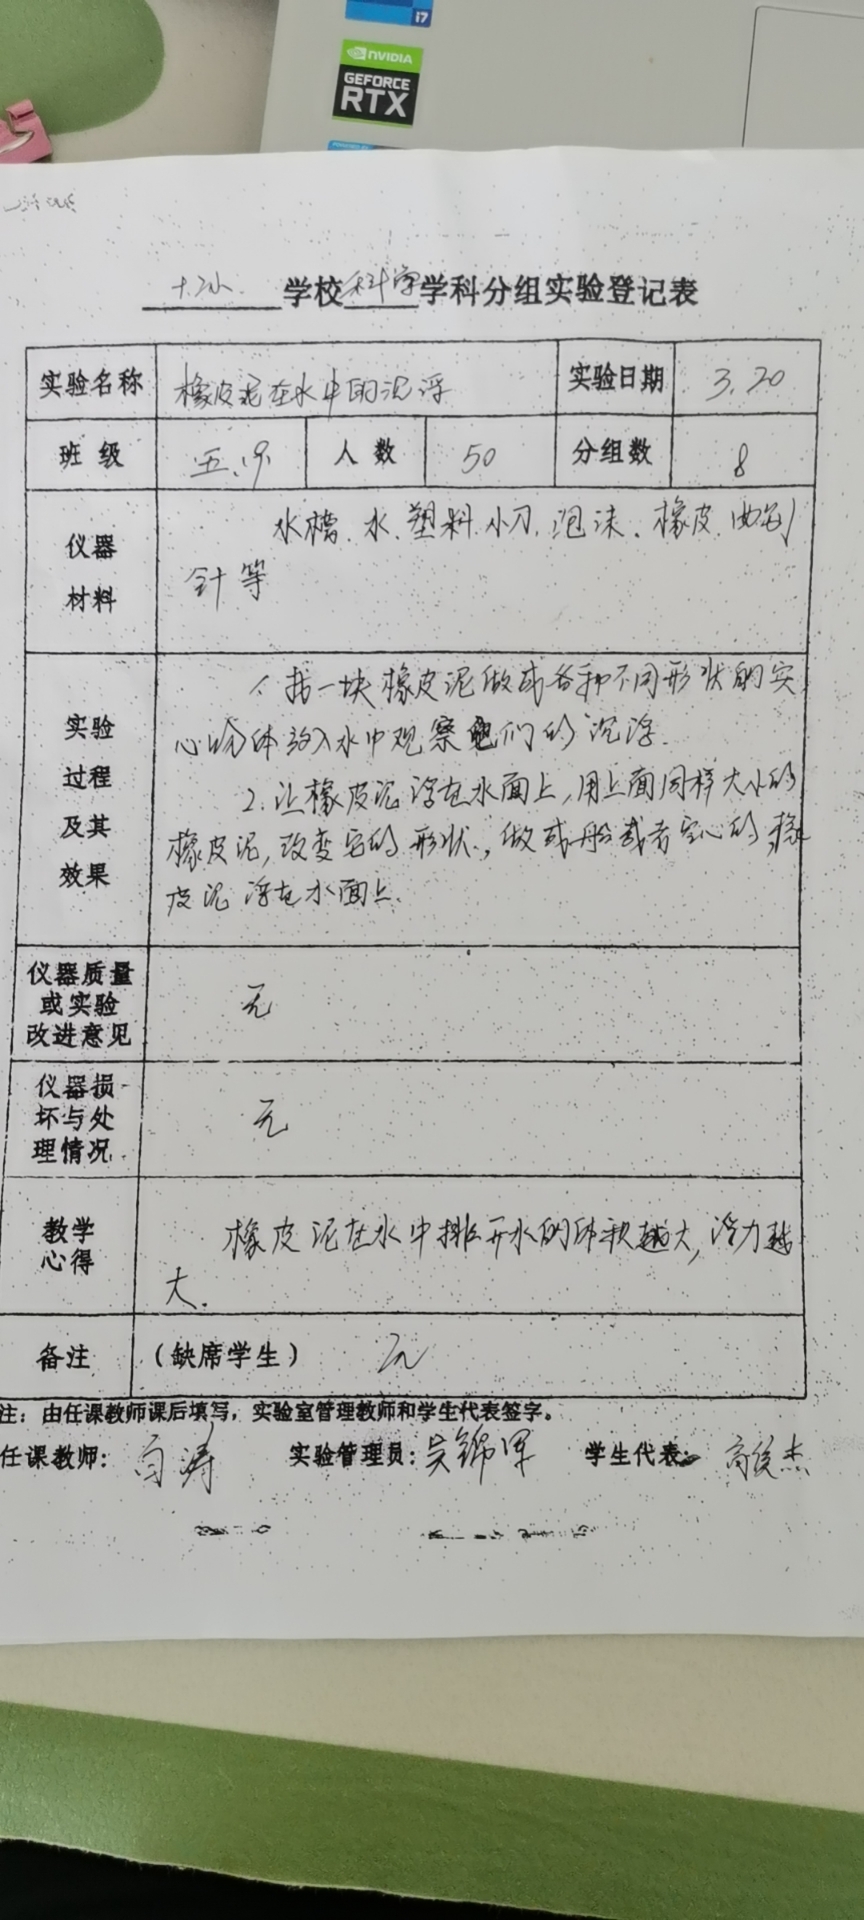 i7
NVIDIA
GEFORCE
RTX
学校科学学科分组实验登记表
实验名称 橡皮泥在水中的沉浮 实验日期 3.20
班级 五. 人数 50 分组数 8
仪器
材料
水槽、水、塑料、小刀、泡沫、橡皮、曲别
针等
实验
过程
及其
效果
1、指一块橡皮泥做成各种不同形状的实
心物体放入水中观察它们的沉浮.
2.让橡皮泥浮在水面上,用上面同样大小的
橡皮泥,改变它的形状,做成船或者空心的,橡
皮泥浮在水面上.
仪器质量
或实验
改进意见
无
仪器损
坏与处
理情况
无
教学
心得
橡皮泥在水中排开水的体积越大,浮力越
大.
备注 (缺席学生) 无
注:由任课教师课后填写,实验室管理教师和学生代表签字。
任课教师:白涛 实验管理员:吴锦军 学生代表: 高俊杰